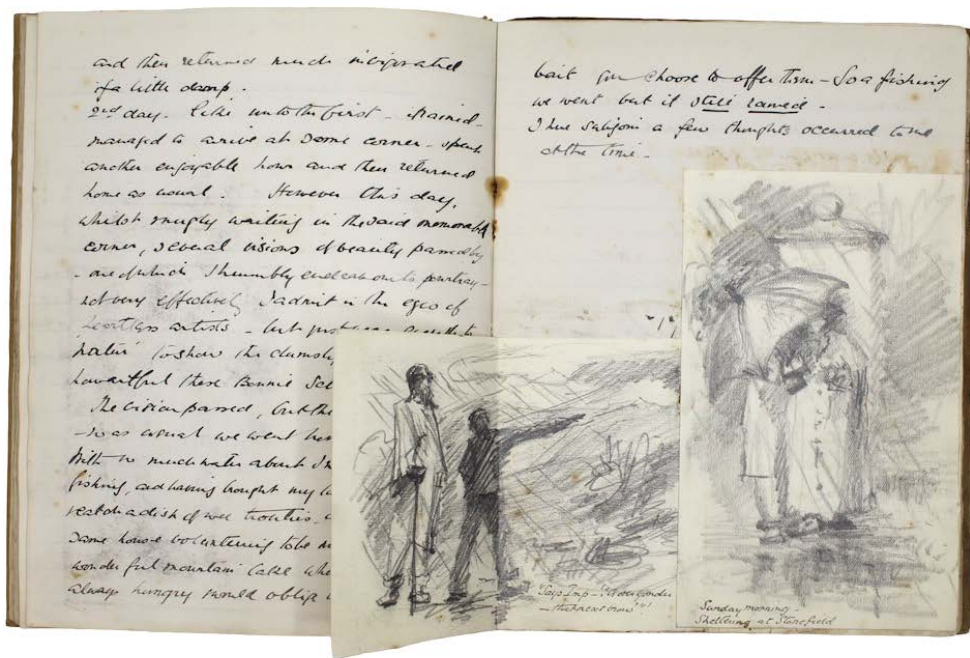 and then returned much invigorated
if a little damp.
2nd day. Like unto the first - it rained -
managed to arrive at same corner - spent
another enjoyable hour and then returned
home as usual. However this day,
whilst snugly waiting in the said memorable
corner, several visions of beauty passed by
- one of which I humbly endeavour to pourtray -
not very effectively I admit in the eyes of
heartless artists - but
to show the clumsy
how artful these Bonnie Sc
The vision passed, but the
- so as usual we went ho
With so much water about I
fishing, and having bought my
catch a dish of wee trouties,
same house volunteering to be
wonderful mountain lake wh
always hungry would oblig
bait you choose to offer them - So a fishing
we went but it still rained.
I here subjoin a few thoughts occurred to me
at the time.
"Says Imp - "
Sunday morning -
Sheltering at Stonefield